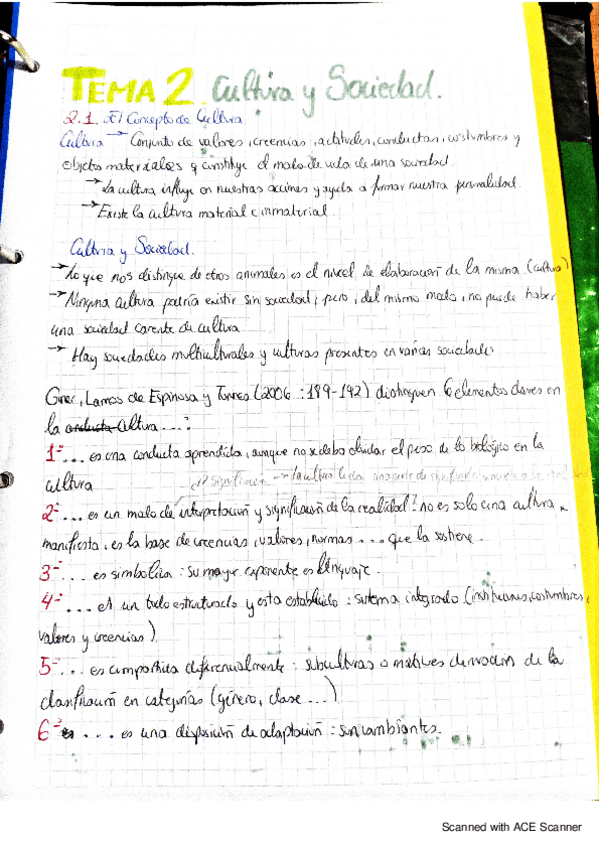 TEMA 2. Cultura y Sociedad.
2.1. El Concepto de Cultura
Cultura → Conjunto de valores, creencias, actitudes, conductas, costumbres y
objetos materiales q constituye el modo de vida de una sociedad.
→ La cultura influye en nuestras acciones y ayuda a formar nuestra personalidad.
→ Existe la cultura material e inmaterial.
Cultura y Sociedad.
→ Lo que nos distingue de otros animales es el nivel de elaboración de la misma (cultura)
→ Ninguna cultura podría existir sin sociedad; pero, del mismo modo, no puede haber
una sociedad carente de cultura
→ Hay sociedades multiculturales y culturas presentes en varias sociedades
Giner, Lamos de Espinosa y Torres (2006: 189-192) distinguen 6 elementos claves en
la conducta cultura...:
1- ... es una conducta aprendida, aunque no se deba olvidar el peso de lo biológico en la
cultura
la cultura
2- ... es un modo de interpretación y significación de la realidad: no es solo una cultura
manifiesta, es la base de creencias, valores, normas... que la sostiene.
3- ... es simbólica: su mayor exponente es lenguaje.
4- ... es un todo estructurado y esta establecido: sistema integrado (instituciones, costumbres,
valores y creencias).
5- ... es compartida diferencialmente: subculturas o matices derivación de la
clasificación en categorías (género, clase...)
6- ... es una disposición de adaptación: son cambiantes.
Scanned with ACE Scanner